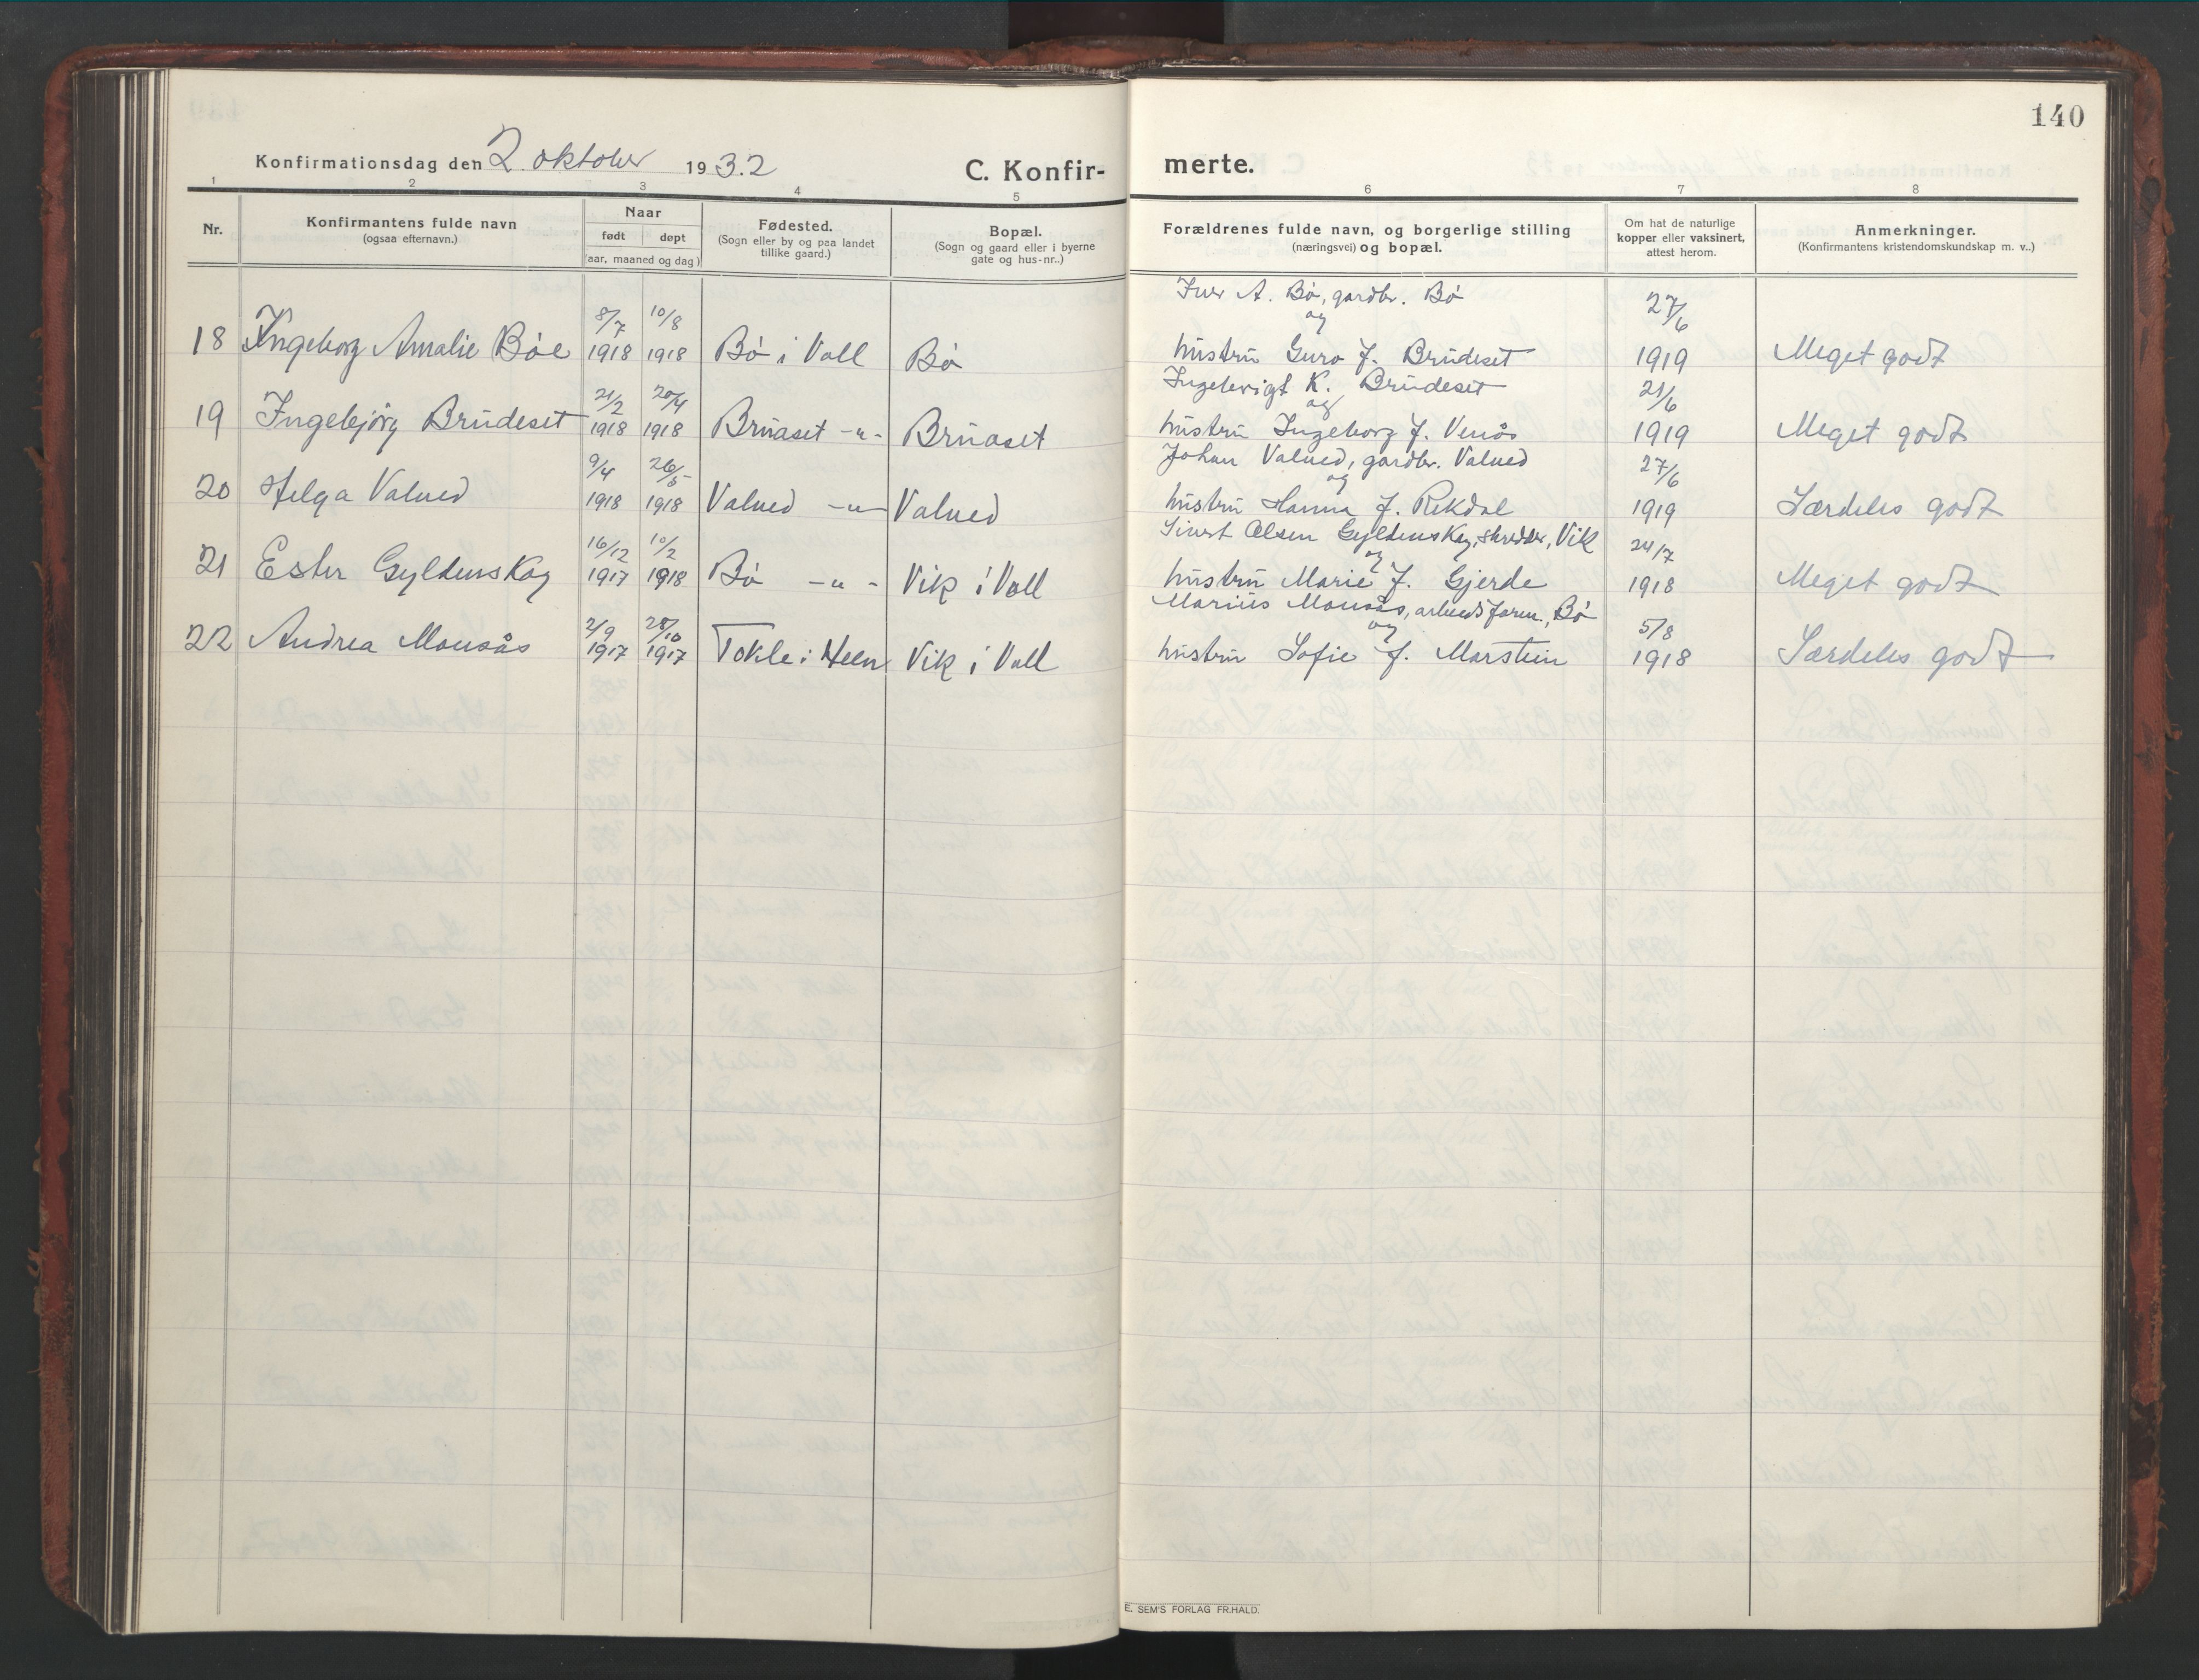 140
Konfirmationsdag den 2. oktober 1932
C. Konfir-merte.
1 2 3 4 5 6 7 8
Nr.
Konfirmantens fulde navn
(ogsaa efternavn.)
Naar
født døpt
(aar, maaned og dag)
Fødested.
(Sogn eller by og paa landet
tillike gaard.)
Bopæl.
(Sogn og gaard eller i byerne
gate og hus-nr..)
Forældrenes fulde navn, og borgerlige stilling
(næringsvei) og bopæl.
Om hat de naturlige
kopper eller vaksinert,
attest herom.
Anmerkninger.
(Konfirmantens kristendomskundskap m. v..)
8/7 10/8 Iver A. Bø, gardbr. Bø 27/6
og
18 Ingeborg Amalie Bøe 1918 1918 Bø i Voll Bø hustru Guro f. Brudeset 1919 Meget godt
21/2 20/4 Ingebrigt K. Brudeset 21/6
og
19 Ingebjørg Brudeset 1918 1918 Bruaset -"- Bruaset hustru Ingeborg f. Venås 1919 Meget godt
9/4 26/5 Johan Valved, gardbr. Valved 27/6
og
20 Helga Valved 1918 1918 Valved -"- Valved hustru Hanna f. Rekdal 1919 Særdeles godt
16/12 10/2 Sivert Olsen Gyldenskog, skredder, Vik 24/7
og
21 Ester Gyldenskog 1917 1918 Bø -"- Vik i Voll hustru Marie f. Gjerde 1918 Meget godt
2/9 28/10 Marius Monsås, arbeidsform., Bø 5/8
og
22 Andrea Monsås 1917 1917 Tokle i Heen Vik i Voll hustru Sofie f. Marstein 1918 Særdeles godt
E. SEM'S FORLAG FR.HALD.